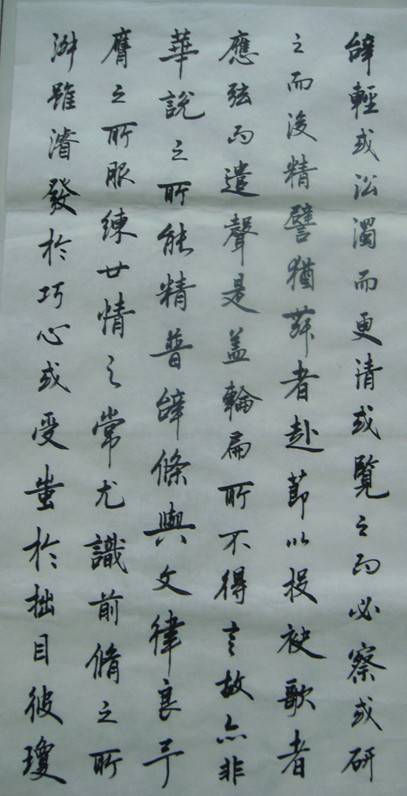 辝輕或沿濁而更清或覽之而必察或研
之而後精譬猶舞者赴節以投袂歌者
應弦而遣聲是盖輪扁所不得言故亦非
華說之所能精普辝條與文律良予
膺之所服練世情之常尤識前脩之所
淑雖濬發於巧心或受蚩於拙目彼瓊